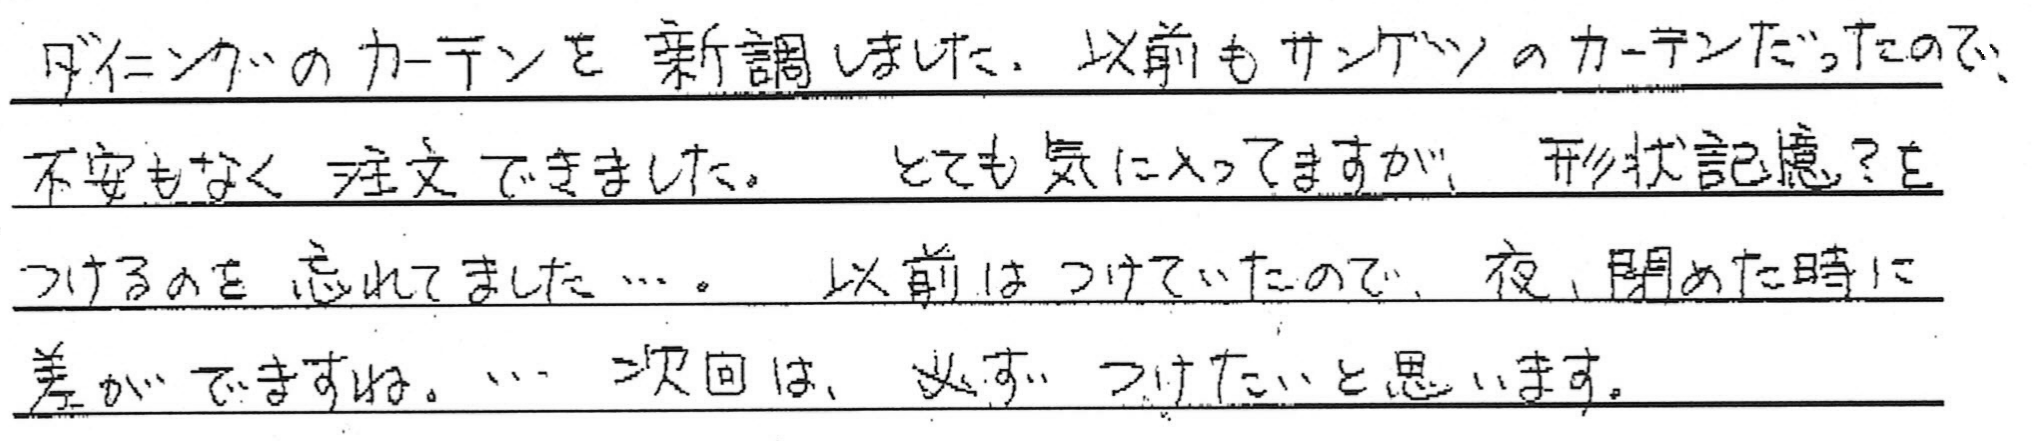 ダイニングのカーテンを新調しました。以前もサンゲツのカーテンだったので、
不安もなく注文できました。とても気に入ってますが、形状記憶?を
つけるのを忘れてました…。以前はつけていたので、夜、閉めた時に
差がでますね。…次回は、必ずつけたいと思います。